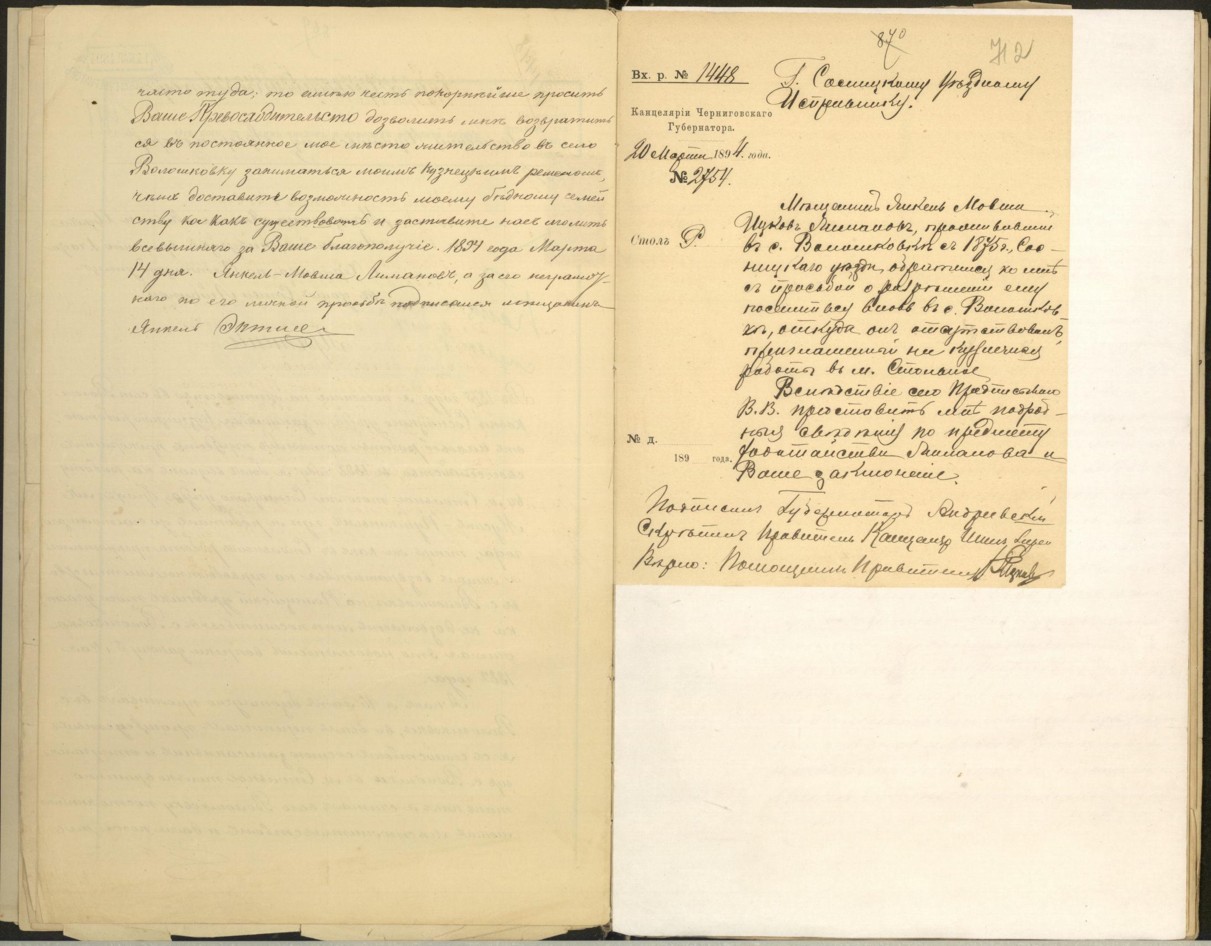 часто туда; то имѣю честь покорнѣйше просить
Ваше Превосходительство дозволить мнѣ возвратить
ся въ постоянное мое мѣсто жительство въ село
Волошковку заниматься моимъ кузнецкимъ ремесломъ,
чѣмъ доставите возможность моему бѣдному семей
ству кое какъ существовать и заставите насъ молить
всевышняго за Ваше благополучіе. 1894 года Марта
14 дня. Янкель-Мовша Лимановъ, а за его неграмот-
наго по его личной просьбѣ подписался мѣщанинъ
Янкель
870
712
Вх. р. № 1448
Г. Сосницкому Уѣздному
Исправнику.
Канцеляріи Черниговскаго
Губернатора.
20 Марта 1894 года.
№ 2754.
Мѣщанинъ Янкель Мовша
Ицковъ Лимановъ, проживавшій
Столъ Р
въ с. Волошковкѣ съ 1875 г., Сос-
ницкаго уѣзда, обратился ко мнѣ
съ просьбой о разрѣшеніи ему
поселиться вновь въ с. Волошков-
кѣ, откуда онъ отсутствовалъ,
приглашенный на кузнечныя
работы въ м. Стольное
Вслѣдствіе сего Предписываю
В.В. представить мнѣ подроб-
ныя свѣдѣнія по предмету
№ д.
ходатайства Лиманова и
189 года.
Ваше заключеніе.
Подписалъ Губернаторъ Андреевскій
Скрѣпилъ Правитель Канцеляр
Вѣрно: Помощникъ Правителя